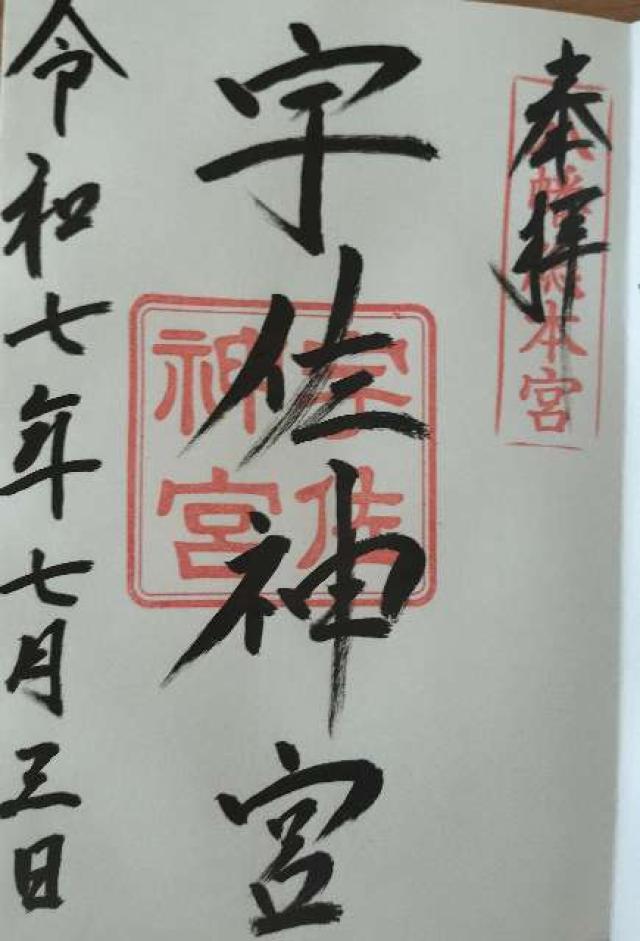 奉拝
八幡総本宮
宇佐神宮
宇佐
神宮
令和七年七月三日